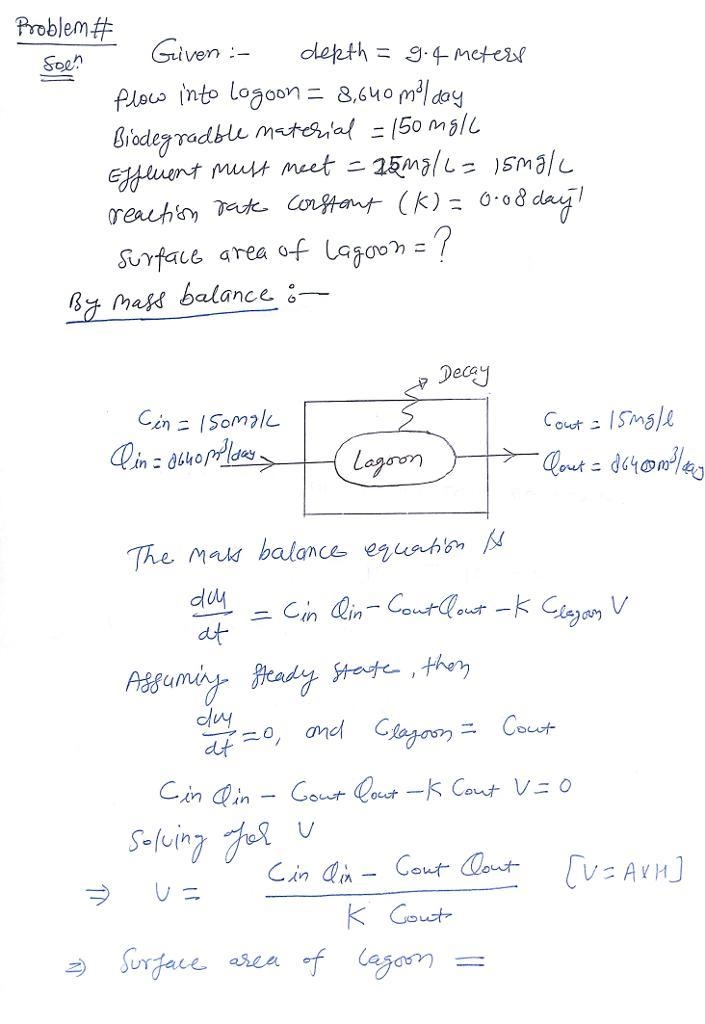 Problem#
Soln Given :- depth = 9.4 meters
flow into lagoon = 8,640 m³/day
Biodegradble material = 150 mg/L
Effluent must meet = 15mg/L = 15mg/L
reaction rate constant (K) = 0.08 day⁻¹
Surface area of Lagoon = ?
By mass balance :—
Decay
Cin = 150mg/L
Qin = 8640 m³/day
Lagoon
Cout = 15mg/l
Qout = 8640 m³/day
The mass balance equation is
dM/dt = Cin Qin - Cout Qout - K Clagoon V
Assuming steady state, then
dM/dt = 0, and Clagoon = Cout
Cin Qin - Cout Qout - K Cout V = 0
Solving for V
⇒ V = (Cin Qin - Cout Qout) / (K Cout) [V = A×H]
⇒ Surface area of lagoon =